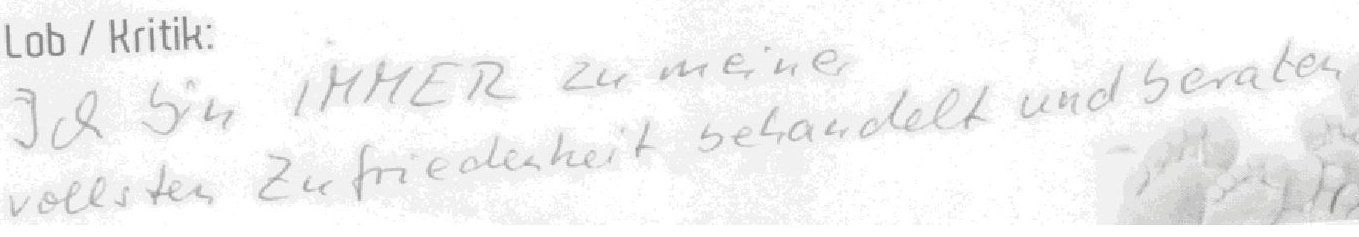 Lob / Kritik:
Ich bin IMMER zu meiner
vollsten Zufriedenheit behandelt und beraten